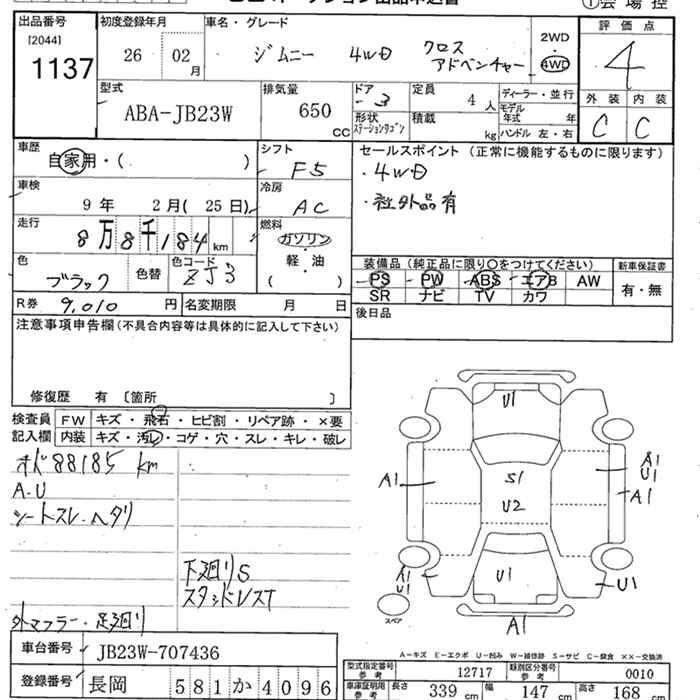 出品番号 初度登録年月 車名・グレード 評価点
[2044] 1137 26 02月 ジムニー 4WD クロスアドベンチャー 2WD 4WD 4
型式 排気量 ドア 定員 ディーラー・並行 外装 内装
ABA-JB23W 650 CC -3 4人 モデル年式 年 C C
形状 ステーションワゴン 積載 kg ハンドル 左・右
車歴 自家用・( ) シフト F5 セールスポイント (正常に機能するものに限ります)
・4WD
車検 9年 2月(25日) 冷房 AC ・社外品有
走行 8万8千184km 燃料 ガソリン
軽・油 ( )
色 ブラック 色替 色コード ZJ3 装備品(純正品に限り○をつけてください) 新車保証書
PS PW ABS エアB AW 有・無
SR ナビ TV カワ
R券 9,010円 名変期限 月 日 後日品
注意事項申告欄(不具合内容等は具体的に記入して下さい)
修復歴 有 〔箇所 〕
検査員 FW キズ・飛石・ヒビ割・リペア跡・×要
記入欄 内装 キズ・汚レ・コゲ・穴・スレ・キレ・破レ
オド88185km
A.U
シートスレ.ヘタリ
下廻りS
スタッドレスT
外マフラー・足廻り
U1
A1 S1 A1 U1
U2 A1
A1 U1 U1 U1
スペア A1
A-キズ E-エクボ U-凹み W-補修跡 S-サビ C-腐食 ××-交換済
車台番号 JB23W-707436 型式指定番号 参考 12717 類別区分番号 参考 0010
登録番号 長岡 581か4096 車庫証明用 参考 長さ 339cm 幅 147cm 高さ 168cm